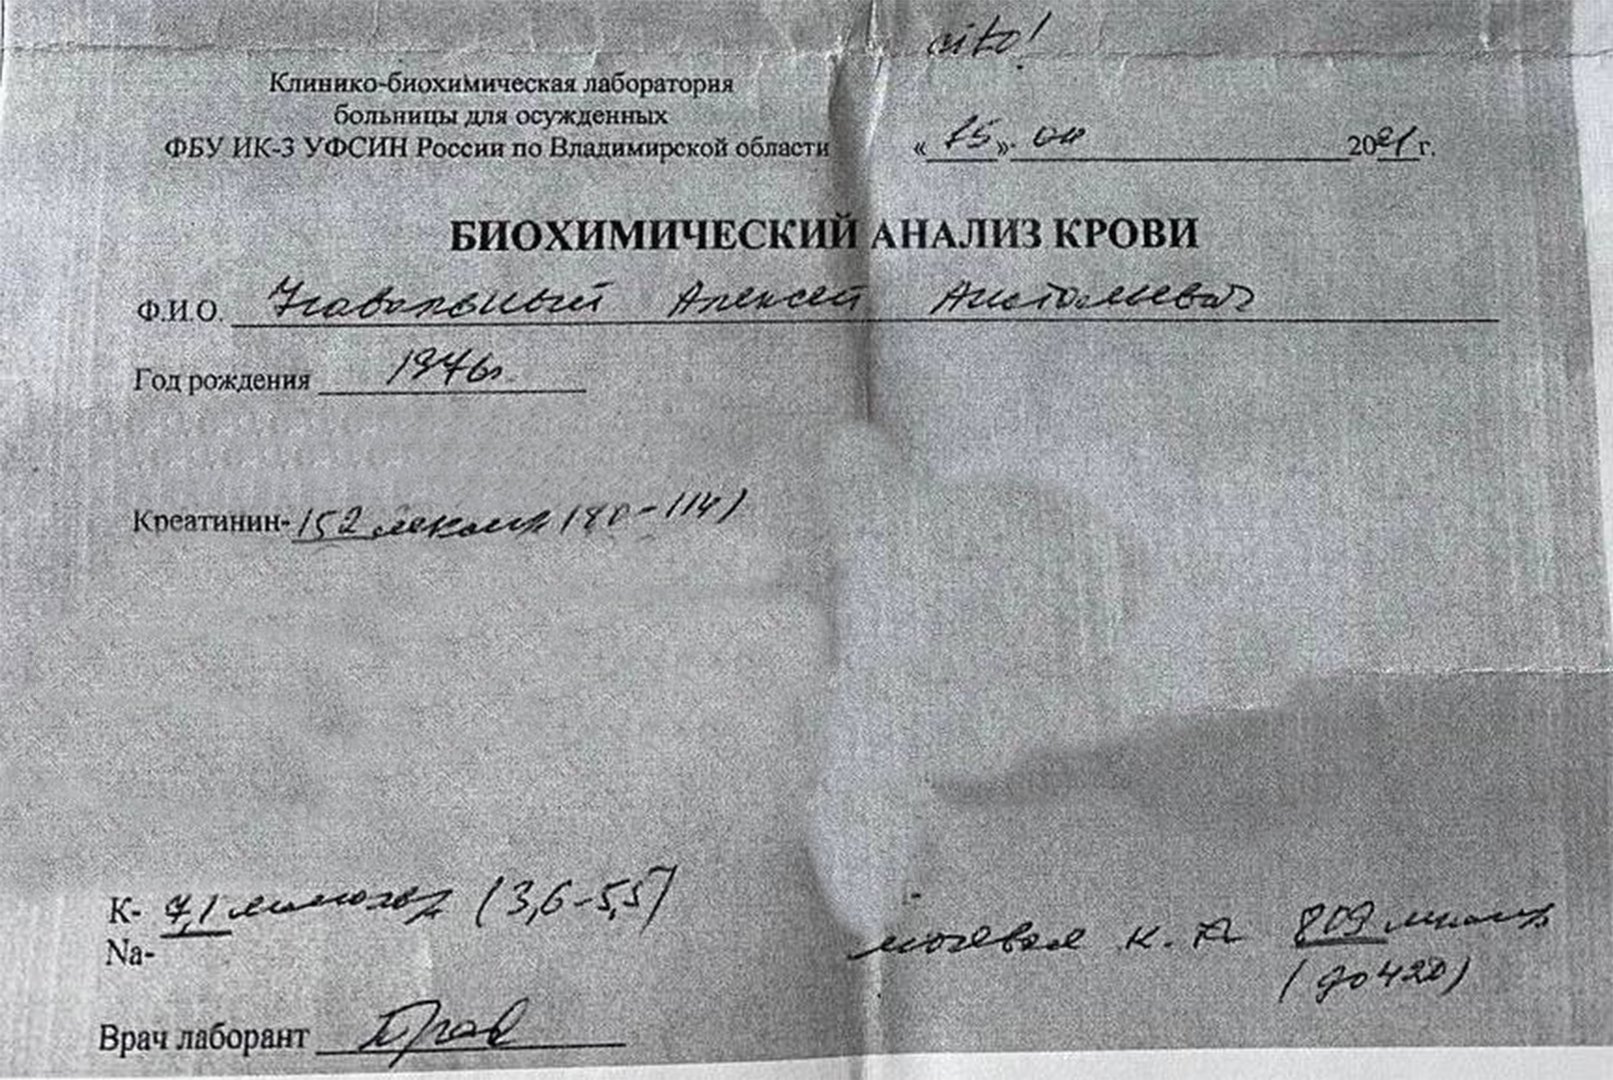 cito!
Клинико-биохимическая лаборатория
больницы для осужденных
ФБУ ИК-3 УФСИН России по Владимирской области
«15» 04 2021г.
БИОХИМИЧЕСКИЙ АНАЛИЗ КРОВИ
Ф.И.О. Навальный Алексей Анатольевич
Год рождения 1976г.
Креатинин- 152 мкмоль/л (80-114)
K- 7,1 ммоль/л (3,6-5,5)
Na-
мочевая к-та 809 мкмоль/л
(до 420)
Врач лаборант